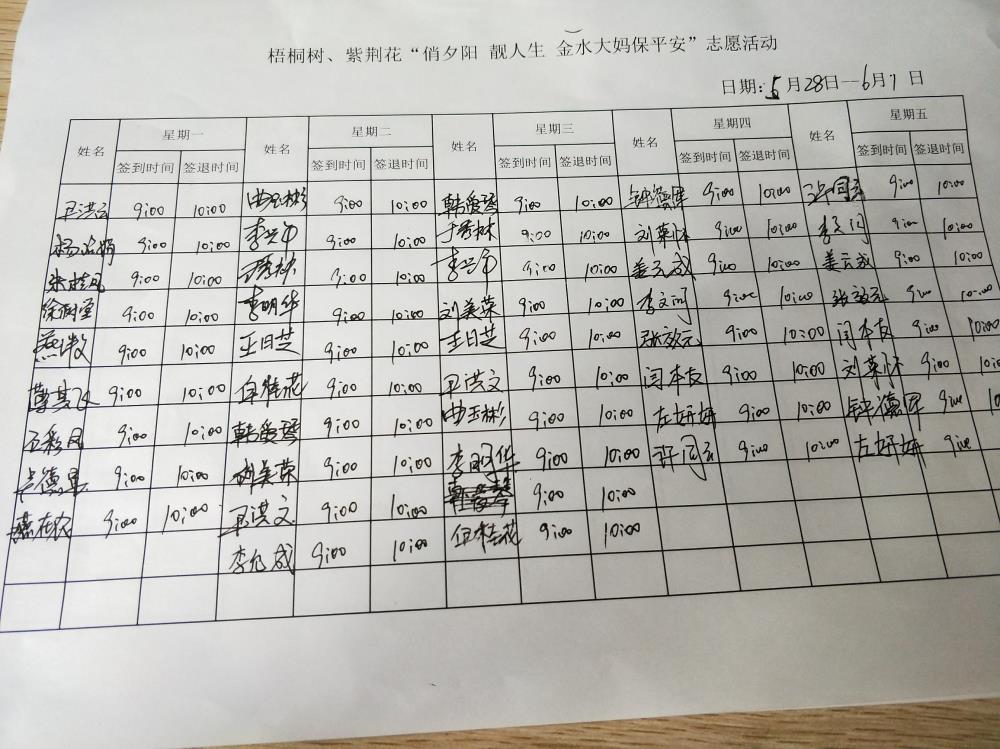 梧桐树、紫荆花“俏夕阳 靓人生 金水大妈保平安”志愿活动
日期:5月28日—6月1日
姓名 星期一 姓名 星期二 姓名 星期三 姓名 星期四 姓名 星期五
签到时间 签退时间 签到时间 签退时间 签到时间 签退时间 签到时间 签退时间 签到时间 签退时间
9:00 10:00 曲玉彬 9:00 10:00 韩爱琴 9:00 10:00 钟德军 9:00 10:00 许同云 9:00 10:00
9:00 10:00 李兴华 9:00 10:00 于秀林 9:00 10:00 刘菜怀 9:00 10:00 李文闩 9:00 10:00
朱桂凤 9:00 10:00 于秀林 9:00 10:00 李兴华 9:00 10:00 姜云成 9:00 10:00 姜云成 9:00 10:00
9:00 10:00 李明华 9:00 10:00 刘美荣 9:00 10:00 9:00 10:00 张效元 9:00 10:00
9:00 10:00 王日芝 9:00 10:00 王日芝 9:00 10:00 张效元 9:00 10:00 闫本友 9:00 10:00
9:00 10:00 白桂花 9:00 10:00 卫洪文 9:00 10:00 闫本友 9:00 10:00 刘菜怀 9:00 10:00
9:00 10:00 韩爱琴 9:00 10:00 曲玉彬 9:00 10:00 左妍妍 9:00 10:00 钟德军 9:00
9:00 10:00 刘美荣 9:00 10:00 李明华 9:00 10:00 许同云 9:00 10:00 左妍妍 9:00
9:00 10:00 卫洪文 9:00 10:00 9:00 10:00
李允成 9:00 10:00 白桂花 9:00 10:00